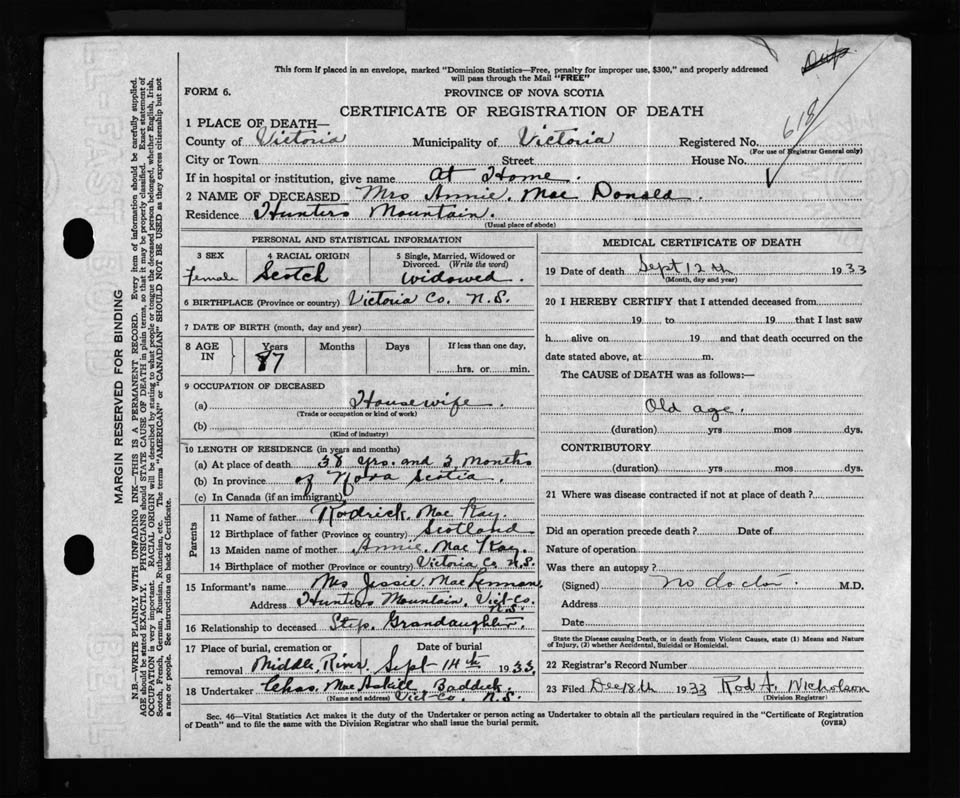 This form if placed in an envelope, marked "Dominion Statistics—Free, penalty for improper use, $300," and properly addressed
will pass through the Mail "FREE"
FORM 6.
PROVINCE OF NOVA SCOTIA
CERTIFICATE OF REGISTRATION OF DEATH
618
1 PLACE OF DEATH—
County of Victoria Municipality of Victoria Registered No.
(For use of Registrar General only)
City or Town Street House No.
If in hospital or institution, give name At Home.
2 NAME OF DECEASED Mrs Annie. Mac Donald.
Residence Hunters Mountain.
(Usual place of abode)
PERSONAL AND STATISTICAL INFORMATION
3 SEX 4 RACIAL ORIGIN 5 Single, Married, Widowed or Divorced. (Write the word)
female Scotch Widowed.
6 BIRTHPLACE (Province or country) Victoria Co. N.S.
7 DATE OF BIRTH (month, day and year)
8 AGE IN Years Months Days If less than one day,
87 hrs. or min.
9 OCCUPATION OF DECEASED
(a) Housewife.
(Trade or occupation or kind of work)
(b)
(Kind of industry)
10 LENGTH OF RESIDENCE (in years and months)
(a) At place of death 38 yrs. and 2 Months
(b) In province of Nova Scotia.
(c) In Canada (if an immigrant)
Parents
11 Name of father Rodrick. Mac Kay.
12 Birthplace of father (Province or country) Scotland
13 Maiden name of mother Annie. Mac Kay.
14 Birthplace of mother (Province or country) Victoria Co. N.S.
15 Informant's name Mrs Jessie. Mac Lennan.
Address Hunters Mountain. Vict-Co. N.S.
16 Relationship to deceased Step. Grandaughter.
17 Place of burial, cremation or removal Date of burial
Middle River. Sept 14th 1933.
18 Undertaker Chas. Mac Askill Baddeck
(Name and address) Vict-Co. N.S.
MEDICAL CERTIFICATE OF DEATH
19 Date of death Sept 12th 1933
(Month, day and year)
20 I HEREBY CERTIFY that I attended deceased from
19 to 19 that I last saw
h alive on 19 and that death occurred on the
date stated above, at m.
The CAUSE of DEATH was as follows:—
Old age.
(duration) yrs mos dys.
CONTRIBUTORY
(duration) yrs mos dys.
21 Where was disease contracted if not at place of death?
Did an operation precede death? Date of
Nature of operation
Was there an autopsy?
(Signed) No doctor. M.D.
Address
Date
State the Disease causing Death, or in death from Violent Causes, state (1) Means and Nature
of Injury, (2) whether Accidental, Suicidal or Homicidal.
22 Registrar's Record Number
23 Filed Dec 18th 1933 Rod A. Nicholson
(Division Registrar)
Sec. 46—Vital Statistics Act makes it the duty of the Undertaker or person acting as Undertaker to obtain all the particulars required in the "Certificate of Registration
of Death" and to file the same with the Division Registrar who shall issue the burial permit.
(OVER)
MARGIN RESERVED FOR BINDING
N.B.—WRITE PLAINLY WITH UNFADING INK—THIS IS A PERMANENT RECORD. Every item of information should be carefully supplied.
AGE should be stated EXACTLY. PHYSICIANS should STATE CAUSE OF DEATH in plain terms, so that it may be properly classified. Exact statement of
OCCUPATION is very important. RACIAL ORIGIN will be described by stating to what people or tongue the deceased person belonged, whether English, Irish,
Scotch, French, German, Russian, Ruthenian, etc. The terms "AMERICAN" or "CANADIAN" SHOULD NOT BE USED as they express citizenship but not
a race or people. See instructions on back of Certificate.